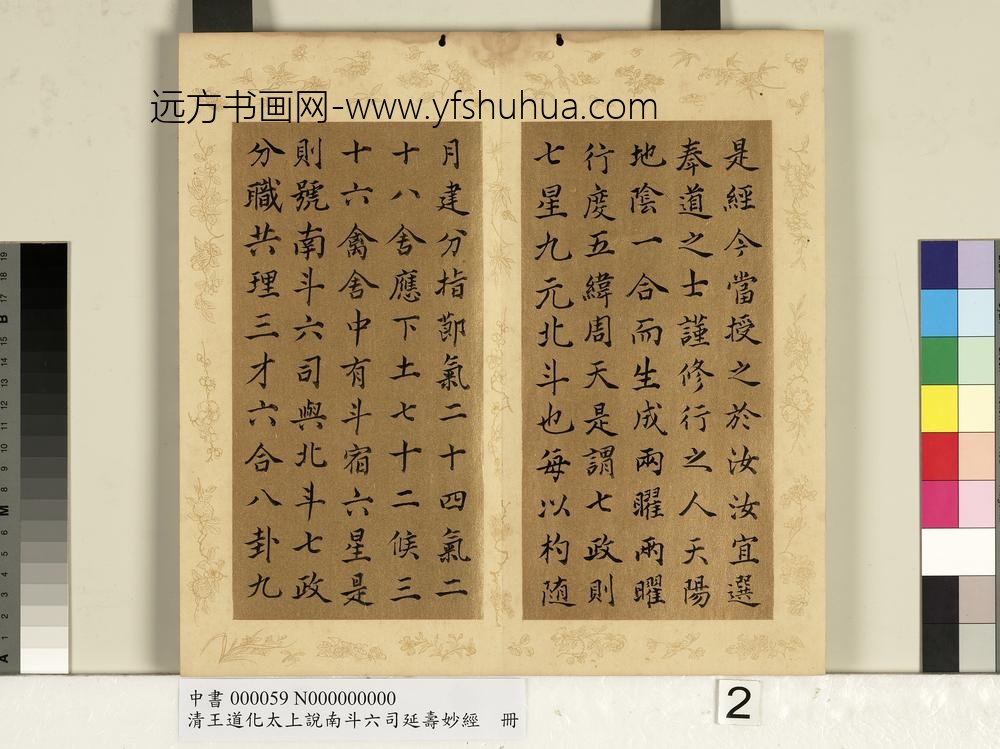 远方书画网-www.yfshuhua.com
是經今當授之於汝汝宜選
奉道之士謹修行之人天陽
地陰一合而生成兩曜兩曜
行度五緯周天是謂七政則
七星九元北斗也每以杓随
月建分指節氣二十四氣二
十八舍應下土七十二候三
十六禽舍中有斗宿六星是
則號南斗六司與北斗七政
分職共理三才六合八卦九
中書 000059 N000000000
清王道化太上說南斗六司延壽妙經 冊
2
19
18
17
B
16
15
14
13
12
11
10
9
8
M
7
6
5
4
3
2
1
A